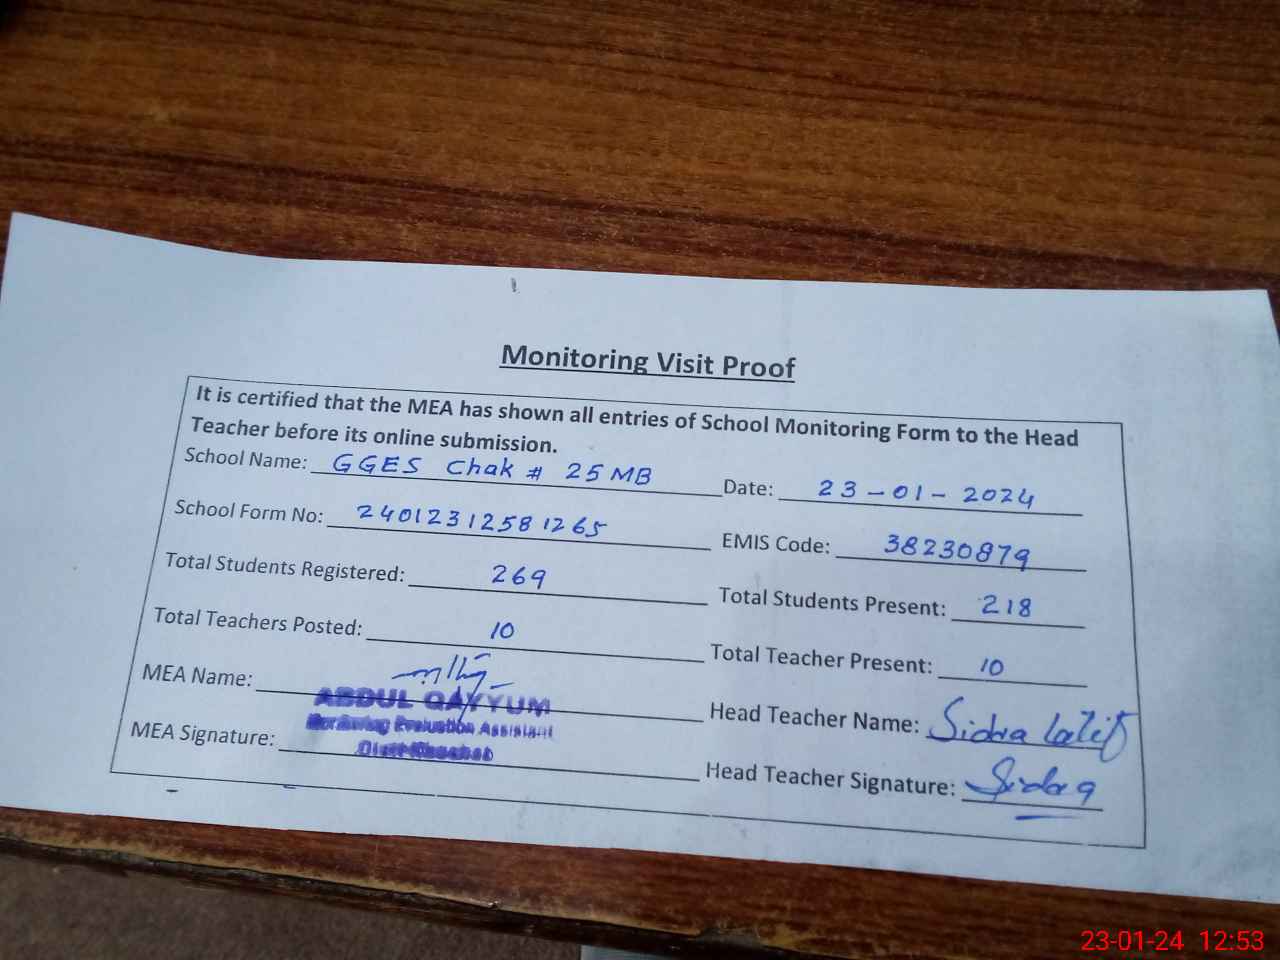 Monitoring Visit Proof
It is certified that the MEA has shown all entries of School Monitoring Form to the Head
Teacher before its online submission.
School Name: GGES Chak # 25 MB Date: 23-01-2024
School Form No: 24012312581265 EMIS Code: 38230879
Total Students Registered: 269 Total Students Present: 218
Total Teachers Posted: 10 Total Teacher Present: 10
MEA Name: ABDUL QAYYUM Head Teacher Name: Sidra Latif
Monitoring Evaluation Assistant
MEA Signature: Head Teacher Signature: Sidra
23-01-24 12:53